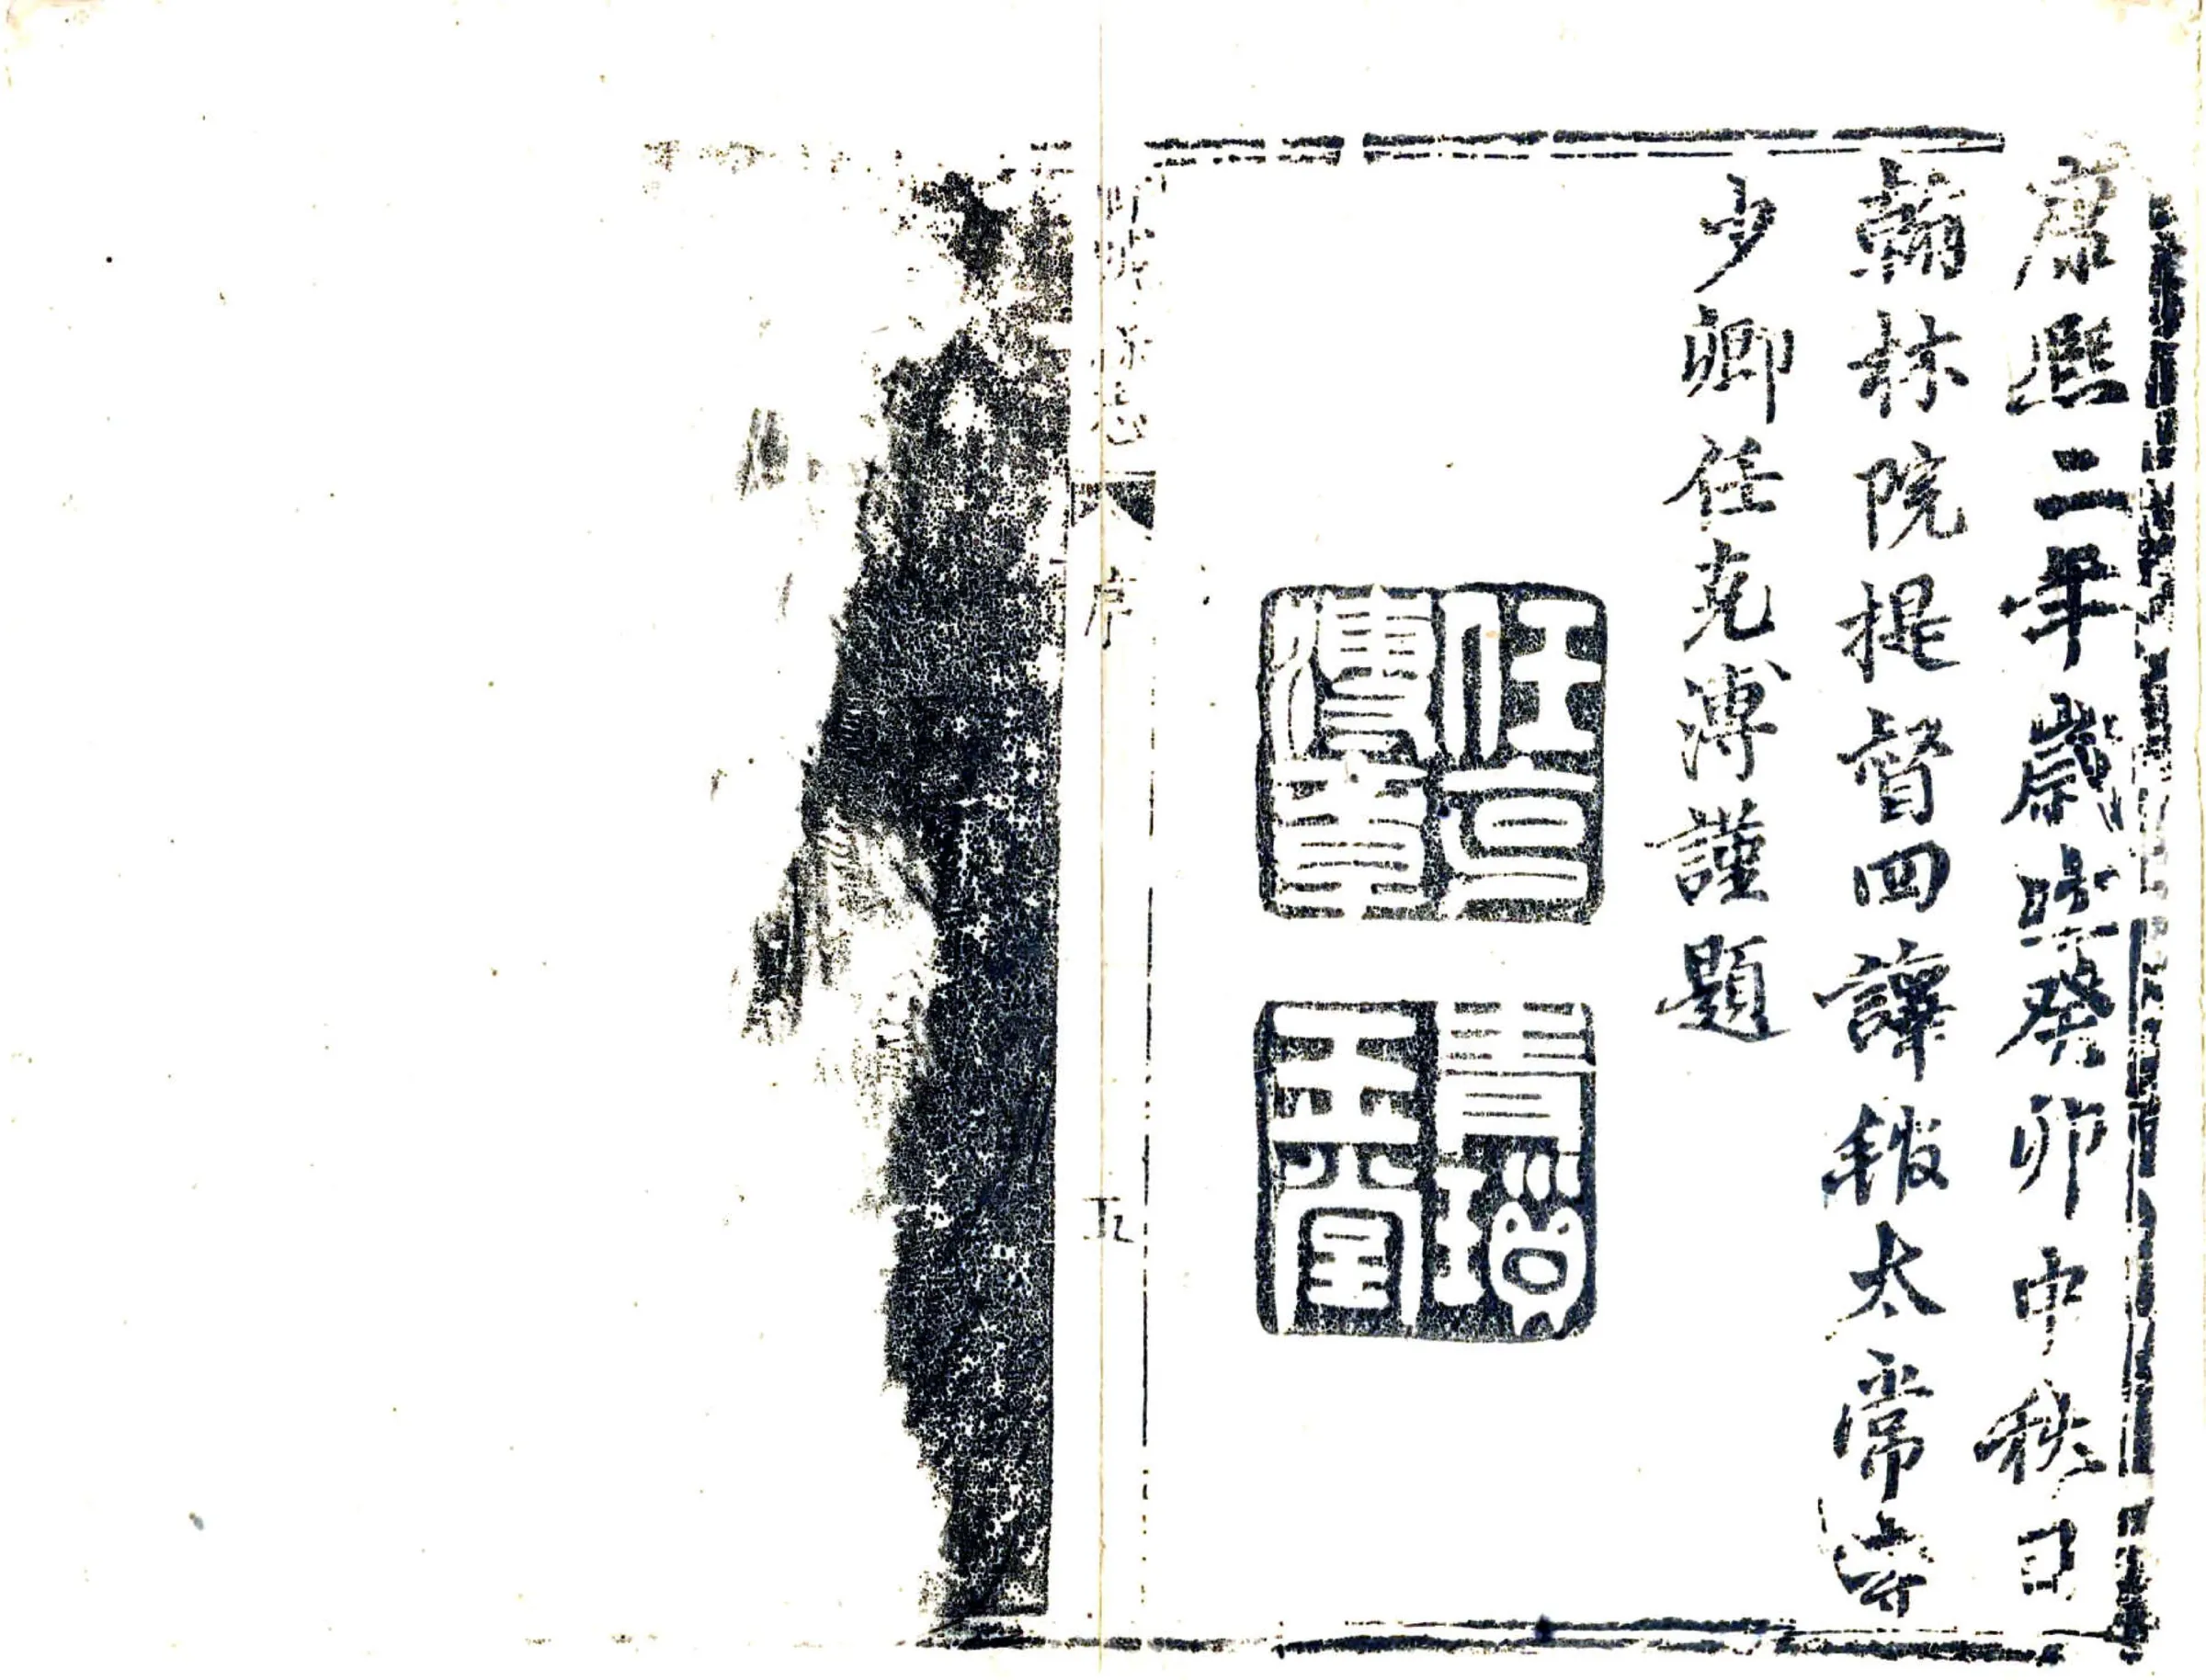 康熙二年歲癸卯中秋日
翰林院提督四譯館太常寺
少卿任克溥謹題
任克
溥章
青瑣
玉堂
聊城縣志 序 五